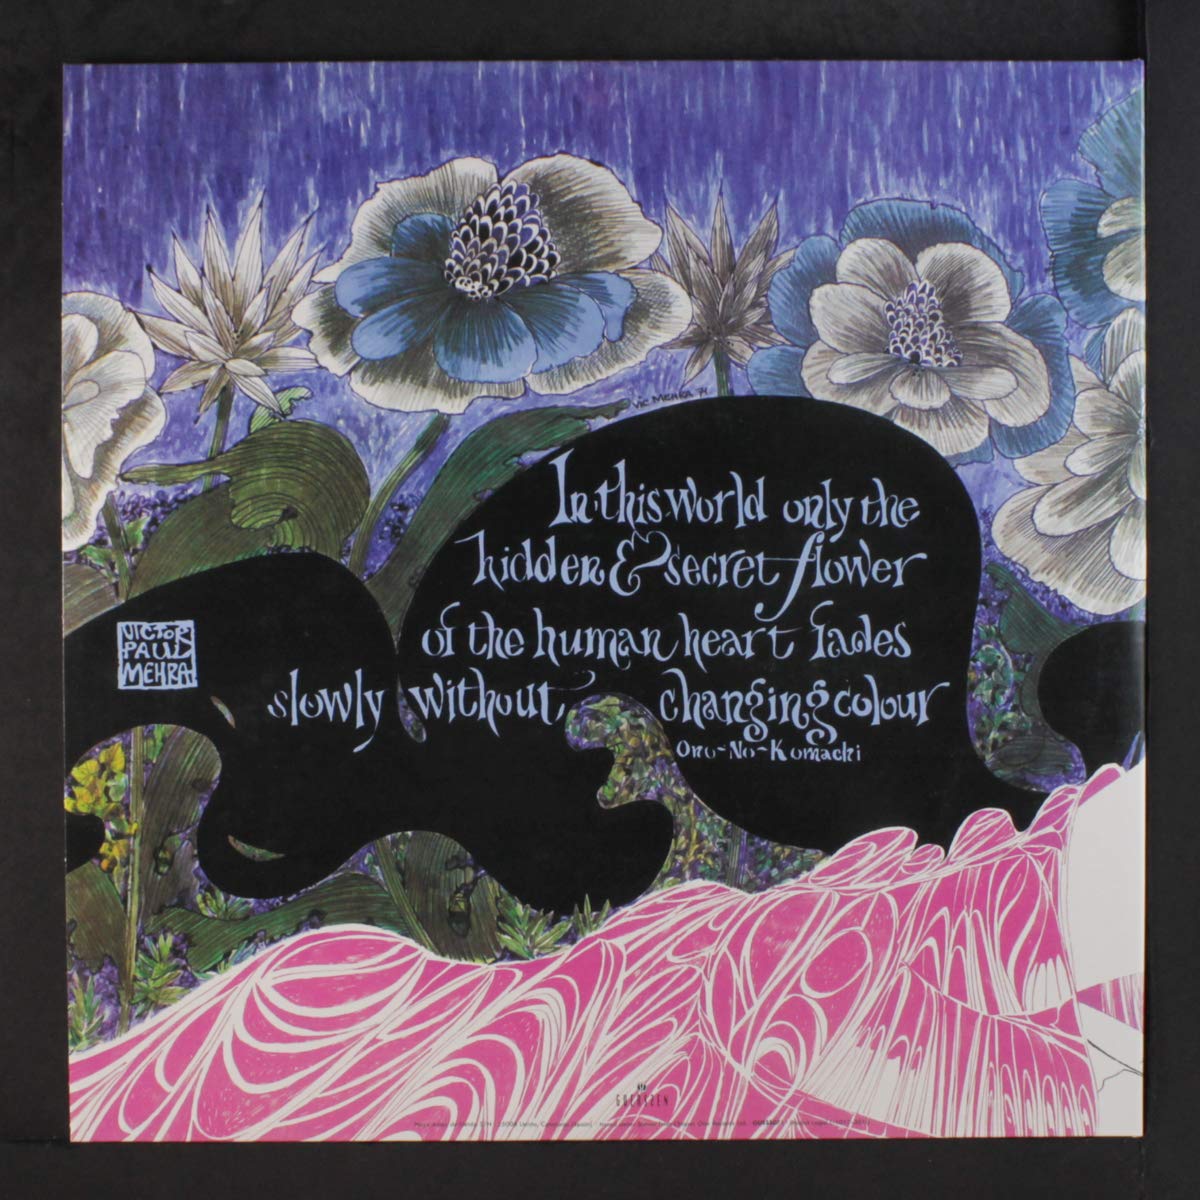 Vic MEHRA 74
In this world only the
hidden & secret flower
of the human heart fades
slowly without, changing colour
Ono-No-Komachi
VICTOR
PAUL
MEHRA
GUERSSEN